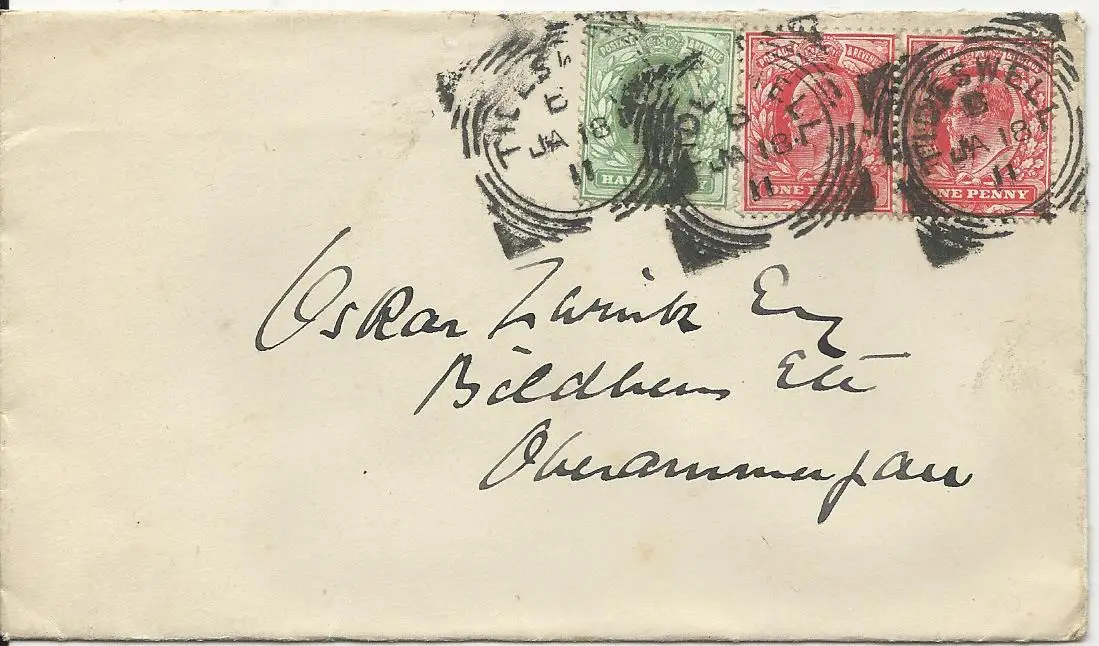 POSTAGE & REVENUE
POSTAGE & REVENUE
TIDESWELL
B
JA 18
11
TIDESWELL
B
JA 18
11
TIDESWELL
B
JA 18
11
HALFPENNY
ONE PENNY
ONE PENNY
Oskar Zwink Esq
Etc
Oberammergau